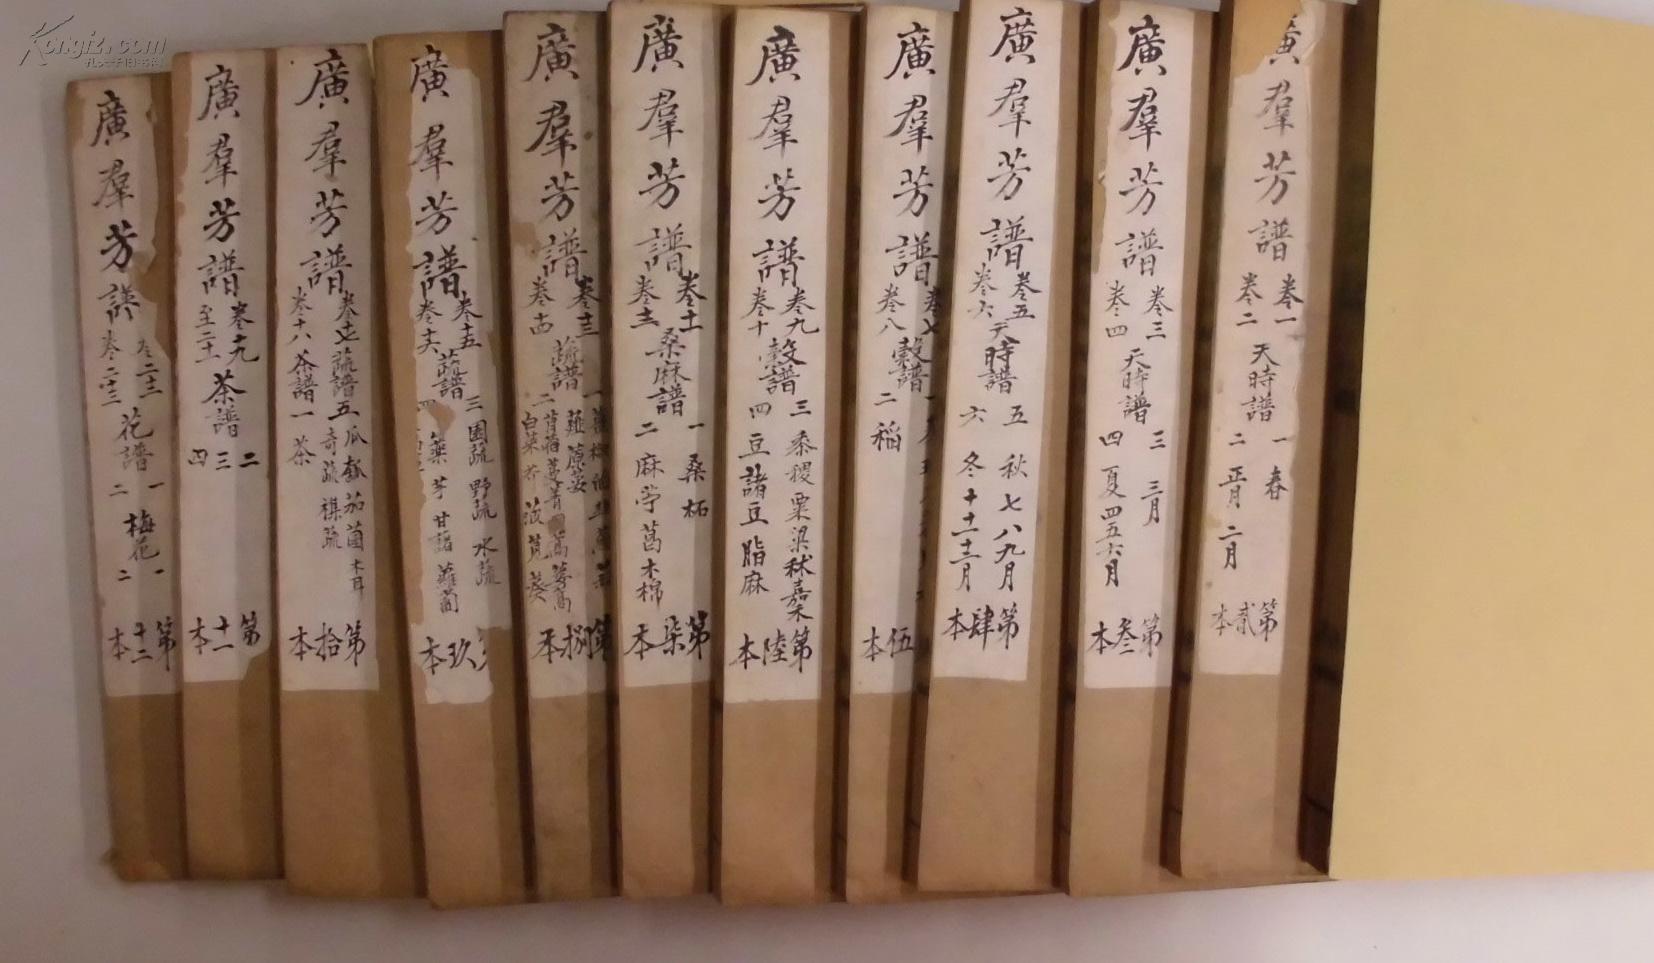 廣羣芳譜
卷一
卷二
天時譜
一 春
二 正月 二月
第貳本
廣羣芳譜
卷三
卷四
天時譜
三 三月
四 夏四五六月
第叁本
廣羣芳譜
卷五
卷六
天時譜
五 秋七八九月
六 冬十十一十二月
第肆本
廣羣芳譜
卷七
卷八
穀譜
二 稻
伍本
廣羣芳譜
卷九
卷十
穀譜
三 黍稷粟梁秫嘉禾
四 豆諸豆脂麻
第陸本
廣羣芳譜
卷十一
卷十二
桑麻譜
一 桑柘
二 麻苧葛木棉
第柒本
廣羣芳譜
卷十三
卷十四
蔬譜
二
白菜芥菠莧葵
第捌本
廣羣芳譜
卷十五
卷十六
蔬譜
三 園蔬 野蔬 水蔬
四
甘藷蘿蔔
玖本
廣羣芳譜
卷十七 蔬譜五 瓜瓠茄菌木耳
奇蔬 棋蔬
卷十八 茶譜一 茶
第拾本
廣羣芳譜
卷十九
至二十一
茶譜
二三四
第十一本
廣羣芳譜
卷二十二
卷二十三
花譜
一
二
梅花
一
二
第十二本
Kongfz.com
孔夫子旧书网